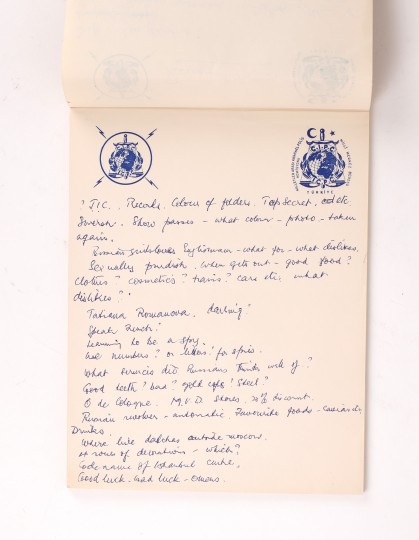 TÜRKIYE
J.I.C. Records. Colour of folders. Top Secret. etc.
Show passes – what colour – photo – taken
again.
Russian girl loves Englishman – what for – what dislikes.
Sexually prudish. When gets out – good food?
Clothes? cosmetics? trains? cars etc. what
dislikes?
Tatiana Romanova. darling
Speaks French?
Learning to be a spy.
use numbers? or letters? for spies.
What services did Russians think well of?
Good teeth? bad? gold caps? Steel?
O de Cologne. M.V.D. stores. discount.
Russian revolver – automatic. Favourite foods – caviar etc.
Drinks.
Where live dachas outside Moscow.
rows of decorations – which?
Code name of Istanbul
Good luck – bad luck – omens.